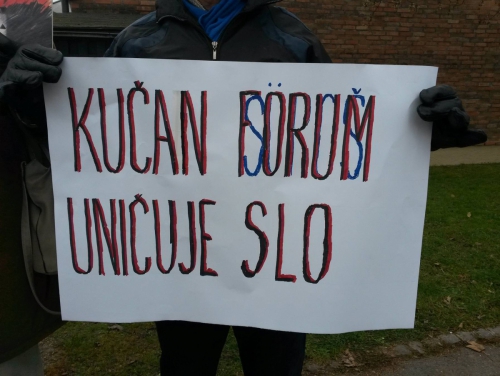 KUČAN FÖRUM
UNIČUJE SLO